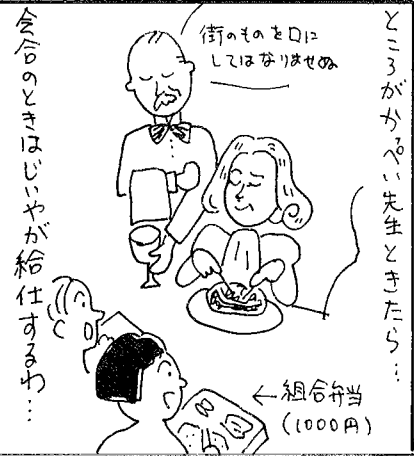 ところがかっぺい先生ときたら…
街のものを口に
してはなりませぬ
会合のときはじいやが給仕するわ…
←組合弁当
(1000円)